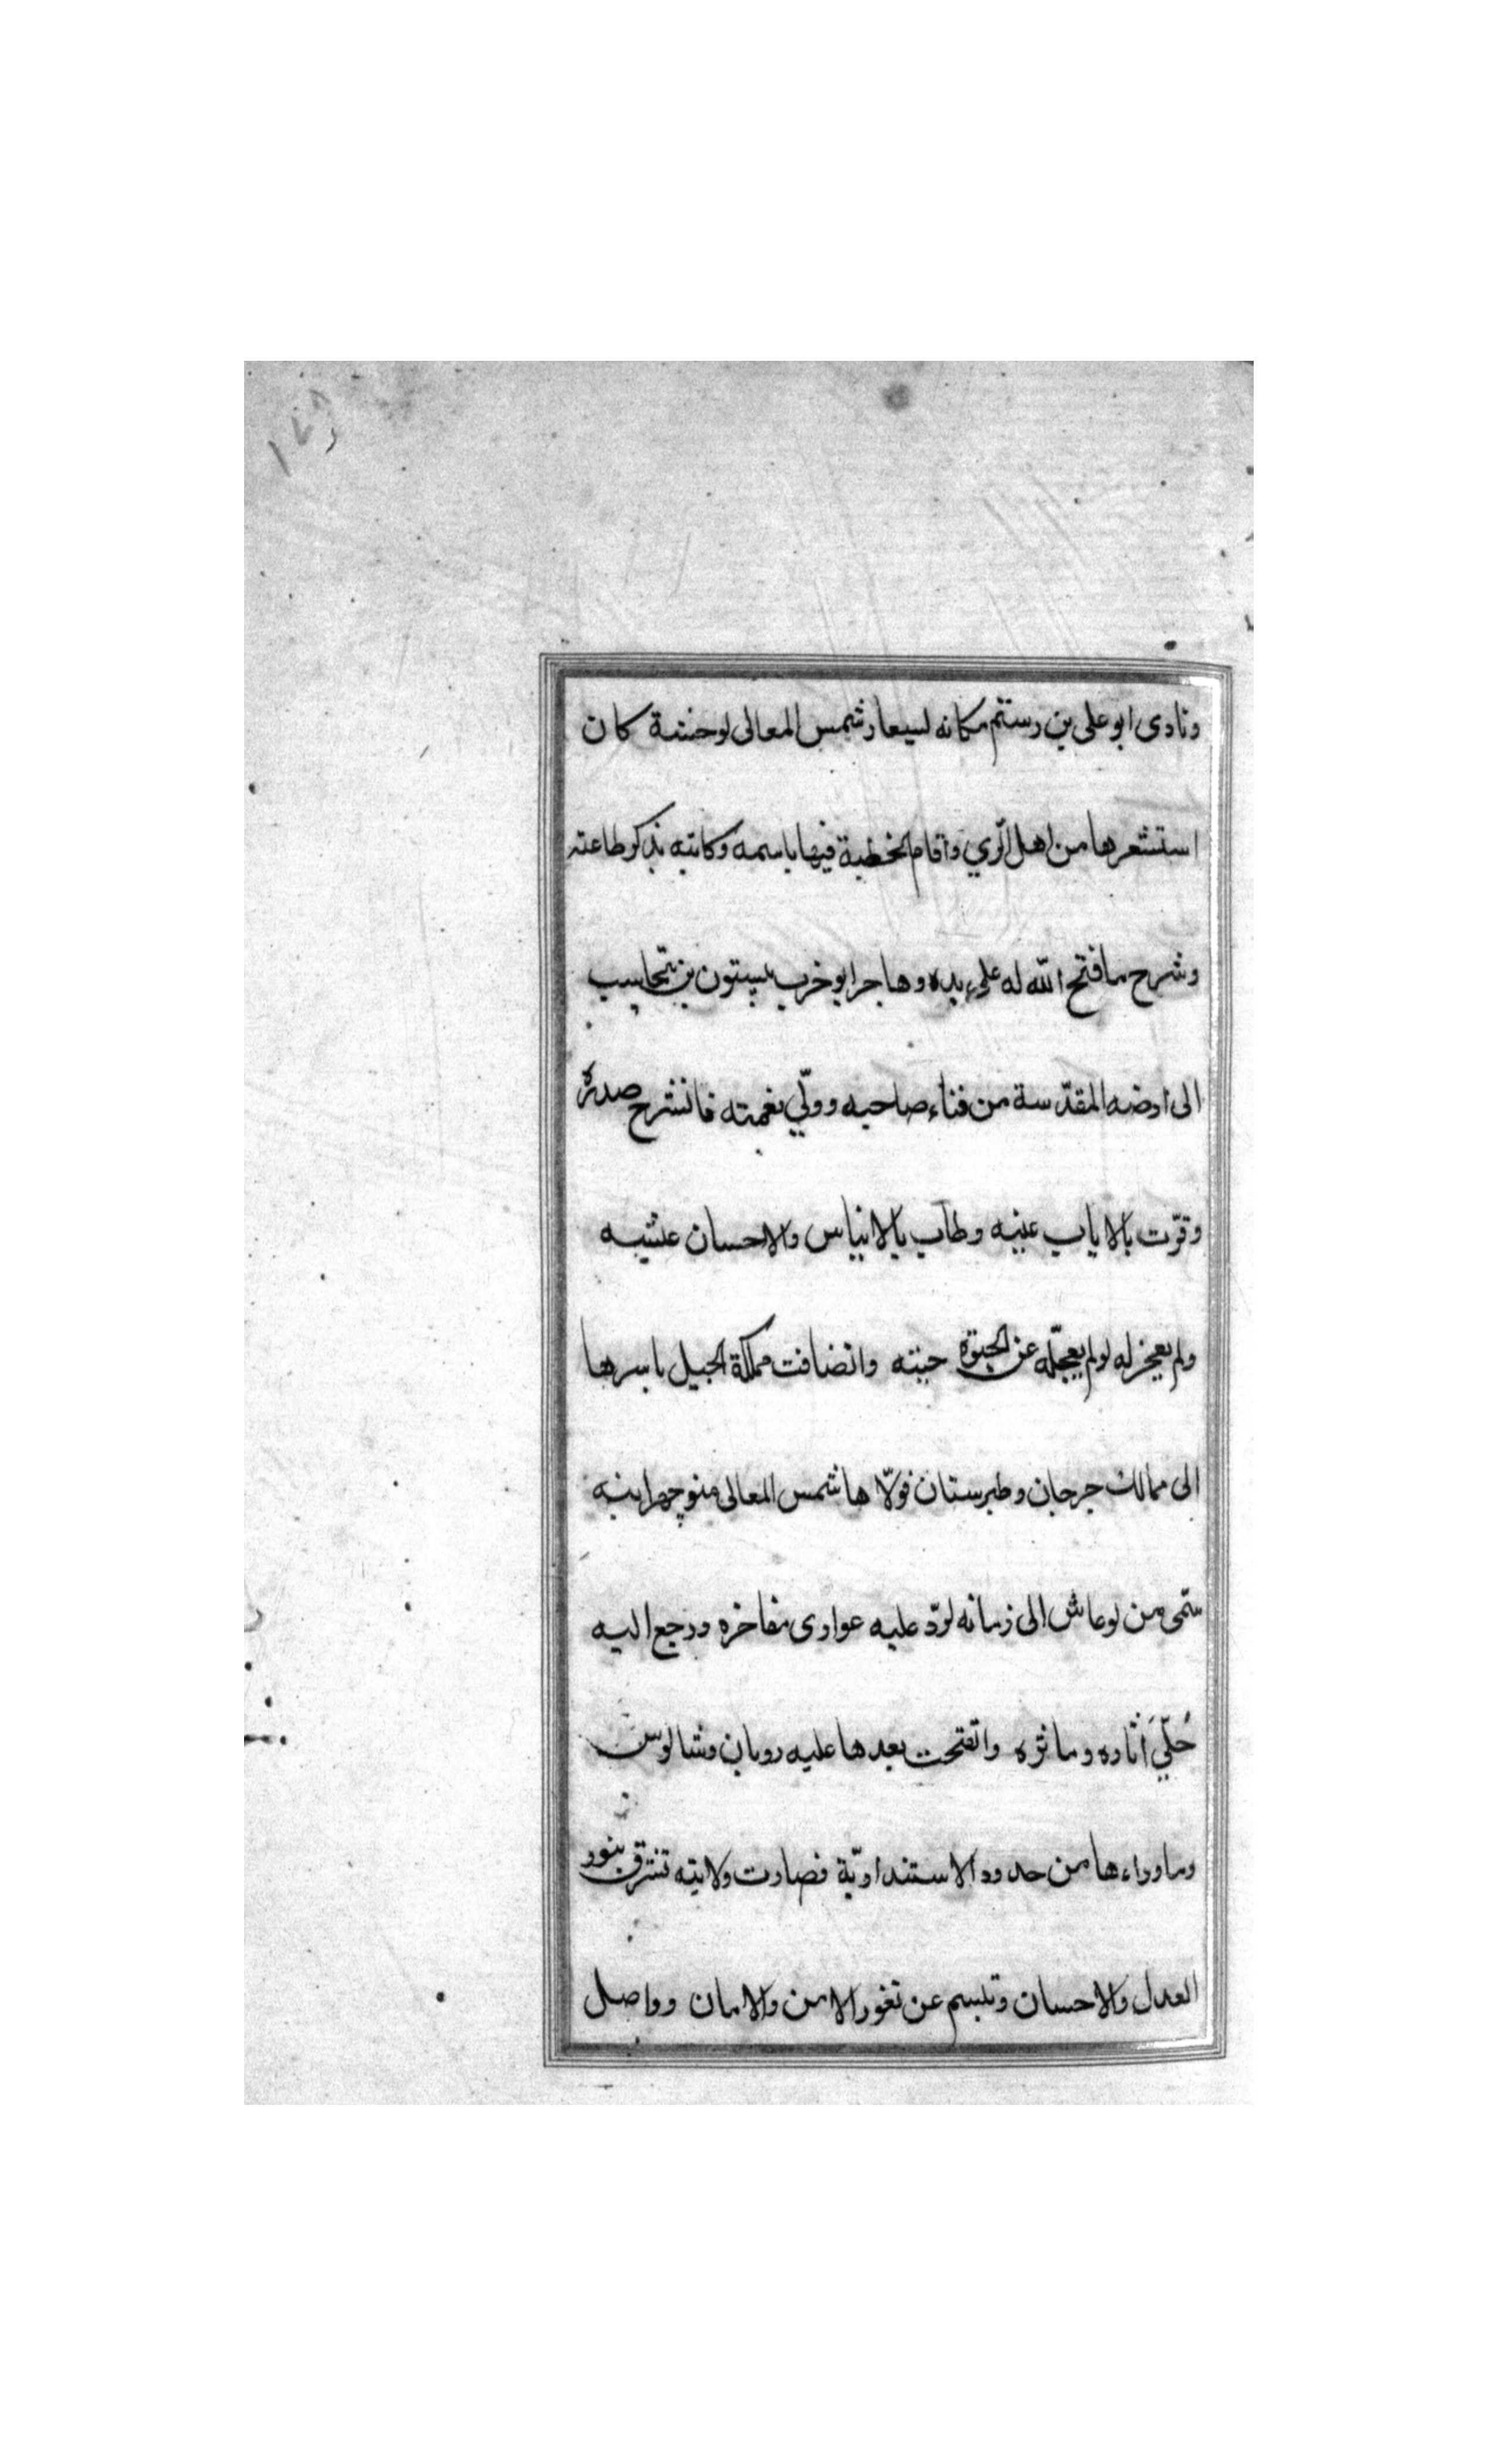 ١٧٩
ونادى ابو على بن رستم مكانه لسيعار شمس المعالى لوحشة كان
استشعرها من اهل الرّي واقام الخطبة فيها باسمه وكاتبه بذكر طاعته
وشرح ما فتح الله له على يده وهاجر ابو خرب بيستون بن تيجاسب
الى ارضه المقدّسة من فناء صاحبه وولّي نعمته فانشرح صدره
وقرّت بالاياب عينه وطاب بالايناس والاحسان عشيه
ولم يعجز له لو لم يعجّله عن الحبوة حينه وانضافت مملكة الجبيل باسرها
الى ممالك جرجان وطبرستان فولّاها شمس المعالى منوچهر ابنه
سمّى من لو عاش الى زمانه لردّ عليه عوارى مفاخره ورجع اليه
حُلّيَ اثاره وماثره واتفتحت بعدها عليه رويان وشالوس
وما وراءها من حدود الاستنداريّة فصارت ولايته تشرق بنور
العدل والاحسان وتبسم عن ثغور الامن والامان وواصل